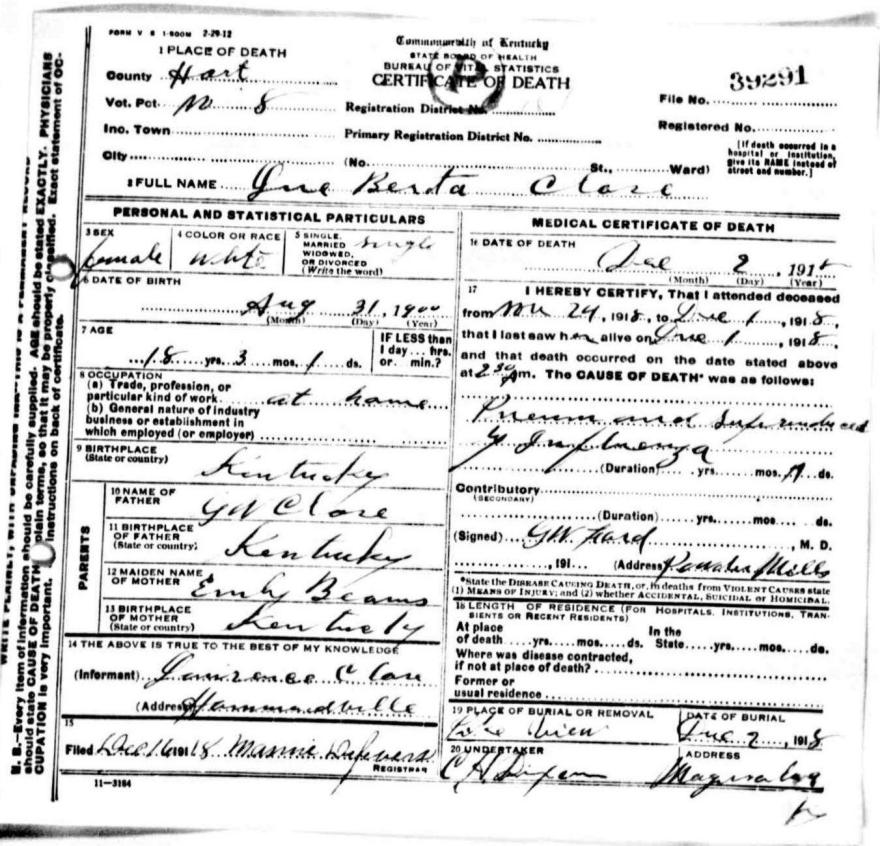 FORM V S 1-500M 2-29-12
Commonwealth of Kentucky
STATE BOARD OF HEALTH
BUREAU OF VITAL STATISTICS
CERTIFICATE OF DEATH
1 PLACE OF DEATH
County Hart
Vot. Pct No 8
Inc. Town
City
Registration District No.
Primary Registration District No.
(No. St., Ward)
File No. 39291
Registered No.
[If death occurred in a
hospital or institution,
give its NAME instead of
street and number.]
2 FULL NAME Berta
PERSONAL AND STATISTICAL PARTICULARS
3 SEX
female
4 COLOR OR RACE
white
5 SINGLE,
MARRIED
WIDOWED,
OR DIVORCED
(Write the word)
single
6 DATE OF BIRTH
Aug 31, 1900
(Month) (Day) (Year)
7 AGE
18 yrs. 3 mos. 1 ds.
IF LESS than
1 day... hrs.
or. min.?
8 OCCUPATION
(a) Trade, profession, or
particular kind of work at home
(b) General nature of industry
business or establishment in
which employed (or employer)
9 BIRTHPLACE
(State or country)
Kentucky
PARENTS
10 NAME OF
FATHER
GW
11 BIRTHPLACE
OF FATHER
(State or country)
Kentucky
12 MAIDEN NAME
OF MOTHER
Emily Beams
13 BIRTHPLACE
OF MOTHER
(State or country)
Kentucky
14 THE ABOVE IS TRUE TO THE BEST OF MY KNOWLEDGE
(Informant)
(Address) Hammondville
15
Filed Dec 16 1918 Mannie
REGISTRAR
11-3184
MEDICAL CERTIFICATE OF DEATH
16 DATE OF DEATH
Dec 2, 1918
(Month) (Day) (Year)
17 I HEREBY CERTIFY, That I attended deceased
from Nov 24, 1918, to Dec 1, 1918,
that I last saw her alive on Dec 1, 1918,
and that death occurred on the date stated above
at 2 30 m. The CAUSE OF DEATH* was as follows:
Influenza
(Duration) yrs. mos. ds.
Contributory
(SECONDARY)
(Duration) yrs. mos. ds.
(Signed) GW , M. D.
, 191... (Address) Mills
*State the DISEASE CAUSING DEATH, or, in deaths from VIOLENT CAUSES state
(1) MEANS OF INJURY; and (2) whether ACCIDENTAL, SUICIDAL or HOMICIDAL.
18 LENGTH OF RESIDENCE (FOR HOSPITALS, INSTITUTIONS, TRAN-
SIENTS OR RECENT RESIDENTS)
At place
of death yrs. mos. ds.
In the
State yrs. mos. ds.
Where was disease contracted,
if not at place of death?
Former or
usual residence
19 PLACE OF BURIAL OR REMOVAL
View
DATE OF BURIAL
Dec 2, 1918
20 UNDERTAKER
C H
ADDRESS
N. B.-Every item of information should be carefully supplied. AGE should be stated EXACTLY. PHYSICIANS
should state CAUSE OF DEATH in plain terms, so that it may be properly classified. Exact statement of OC-
CUPATION is very important. instructions on back of certificate.